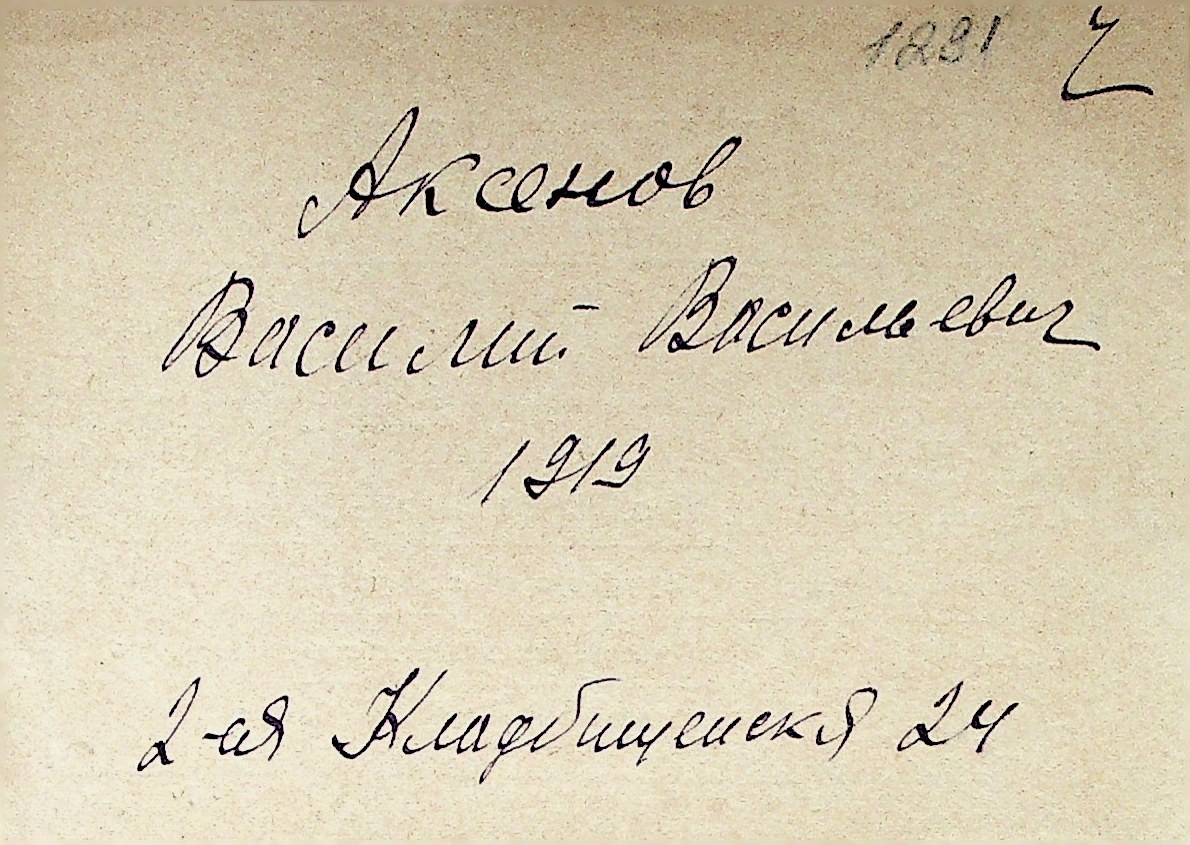 1291
Аксенов
Василий Васильевич
1919
2-ая Кладбищенскя 24